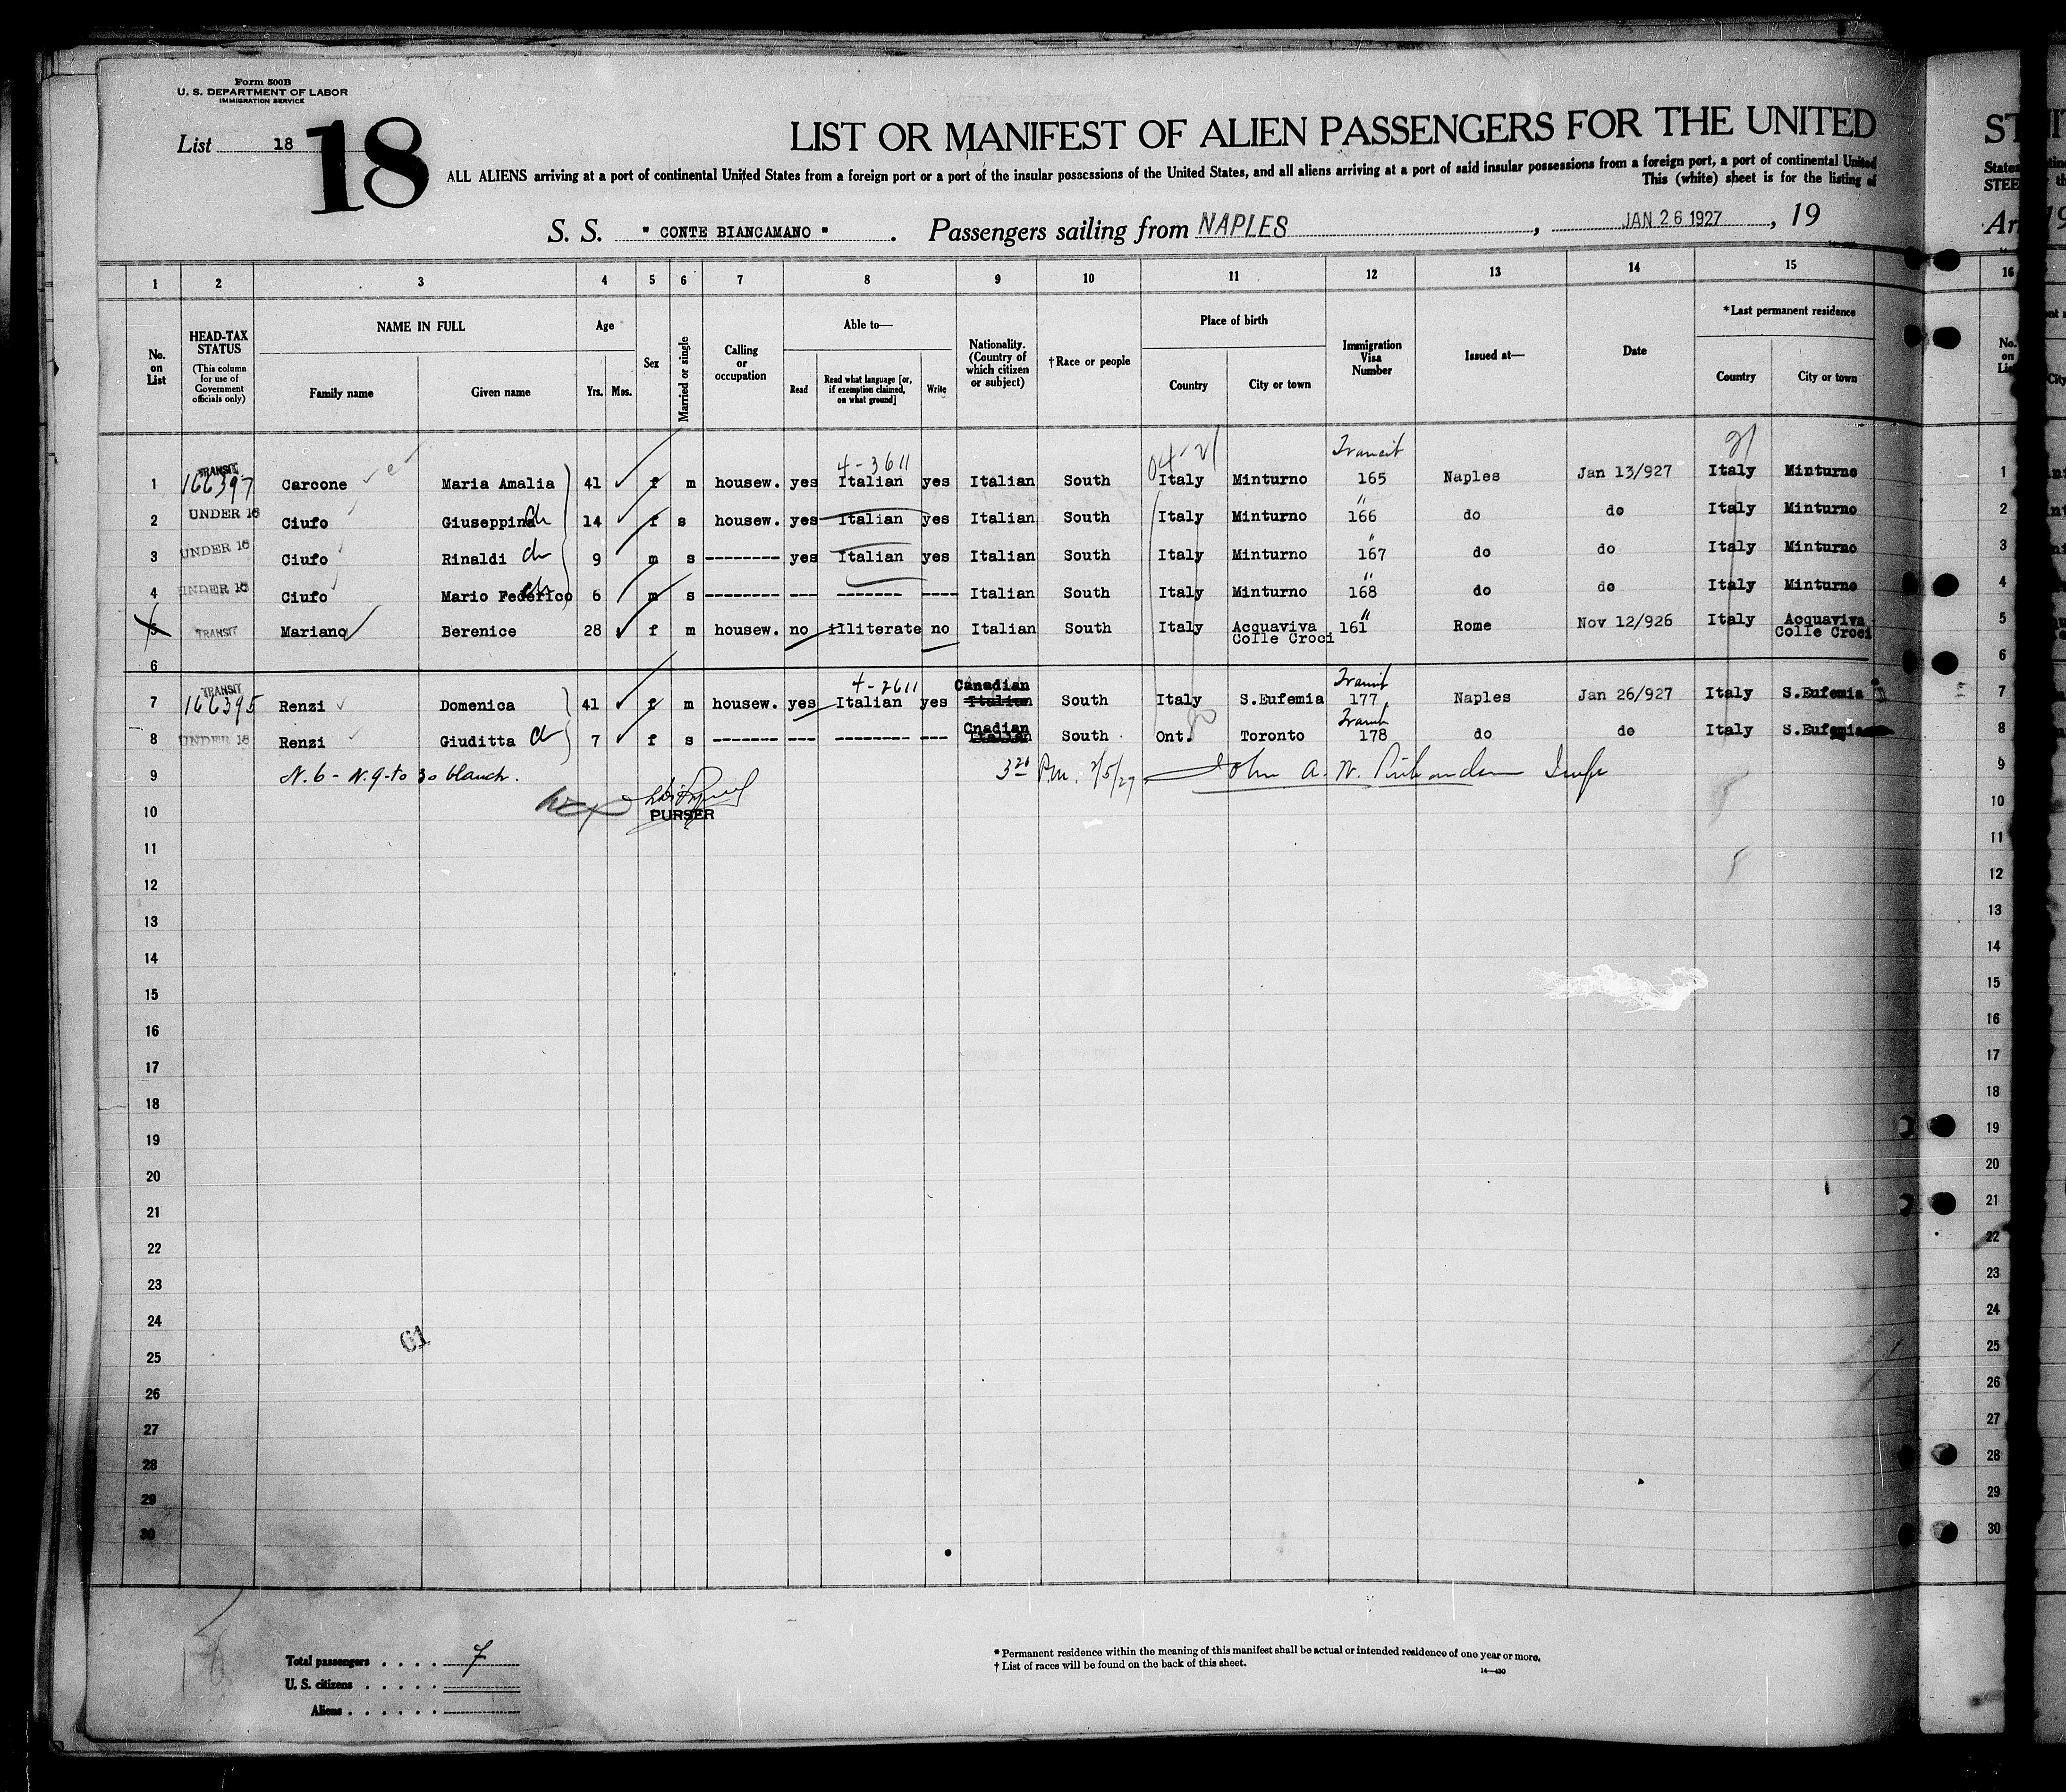 Form 500B
U. S. DEPARTMENT OF LABOR
IMMIGRATION SERVICE
List 18
18
LIST OR MANIFEST OF ALIEN PASSENGERS FOR THE UNITED
ALL ALIENS arriving at a port of continental United States from a foreign port or a port of the insular possessions of the United States, and all aliens arriving at a port of said insular possessions from a foreign port, a port of continental United
This (white) sheet is for the listing of
S. S. " CONTE BIANCAMANO " . Passengers sailing from NAPLES , JAN 26 1927 , 19
1 2 3 4 5 6 7 8 9 10 11 12 13 14 15
No. on List
HEAD-TAX STATUS (This column for use of Government officials only)
NAME IN FULL
Family name Given name
Age
Yrs. Mos.
Sex
Married or single
Calling or occupation
Able to—
Read
Read what language [or, if exemption claimed, on what ground]
Write
Nationality. (Country of which citizen or subject)
†Race or people
Place of birth
Country City or town
Immigration Visa Number
Issued at—
Date
*Last permanent residence
Country City or town
4-3611 Transit
1 TRANSIT 166397 Carcone Maria Amalia 41 f m housew. yes Italian yes Italian South Italy Minturno 165 Naples Jan 13/927 Italy Minturno
2 UNDER 16 Ciufo Giuseppina ch 14 f s housew. yes Italian yes Italian South Italy Minturno " 166 do do Italy Minturno
3 UNDER 16 Ciufo Rinaldi ch 9 m s -------- yes Italian yes Italian South Italy Minturno " 167 do do Italy Minturno
4 UNDER 16 Ciufo Mario Federico ch 6 m s -------- --- ------- ---- Italian South Italy Minturno " 168 do do Italy Minturno
5 TRANSIT Mariano Berenice 28 f m housew. no illiterate no Italian South Italy Acquaviva Colle Croci " 161 Rome Nov 12/926 Italy Acquaviva Colle Croci
6
4-2611 Transit
7 TRANSIT 166395 Renzi Domenica 41 f m housew. yes Italian yes Canadian Italian South Italy S.Eufemia 177 Naples Jan 26/927 Italy S.Eufemia
8 UNDER 16 Renzi Giuditta ch 7 f s ------- --- -------- --- Cnadian Italian South Ont. Toronto Transit 178 do do Italy S.Eufemia
9 N. 6 - N. 9 to 30 blanck. 3 20 P.m. 2/5/27 John A. W.
10 PURSER
11
12
13
14
15
16
17
18
19
20
21
22
23
24
61
25
26
27
28
29
30
Total passengers . . . . 7
U. S. citizens . . . . .
Aliens . . . . . .
* Permanent residence within the meaning of this manifest shall be actual or intended residence of one year or more.
† List of races will be found on the back of this sheet.
14—430
ST
States
STEE
16
No. on
1
2
3
4
5
6
7
8
9
10
11
12
13
14
15
16
17
18
19
20
21
22
23
24
25
26
27
28
29
30